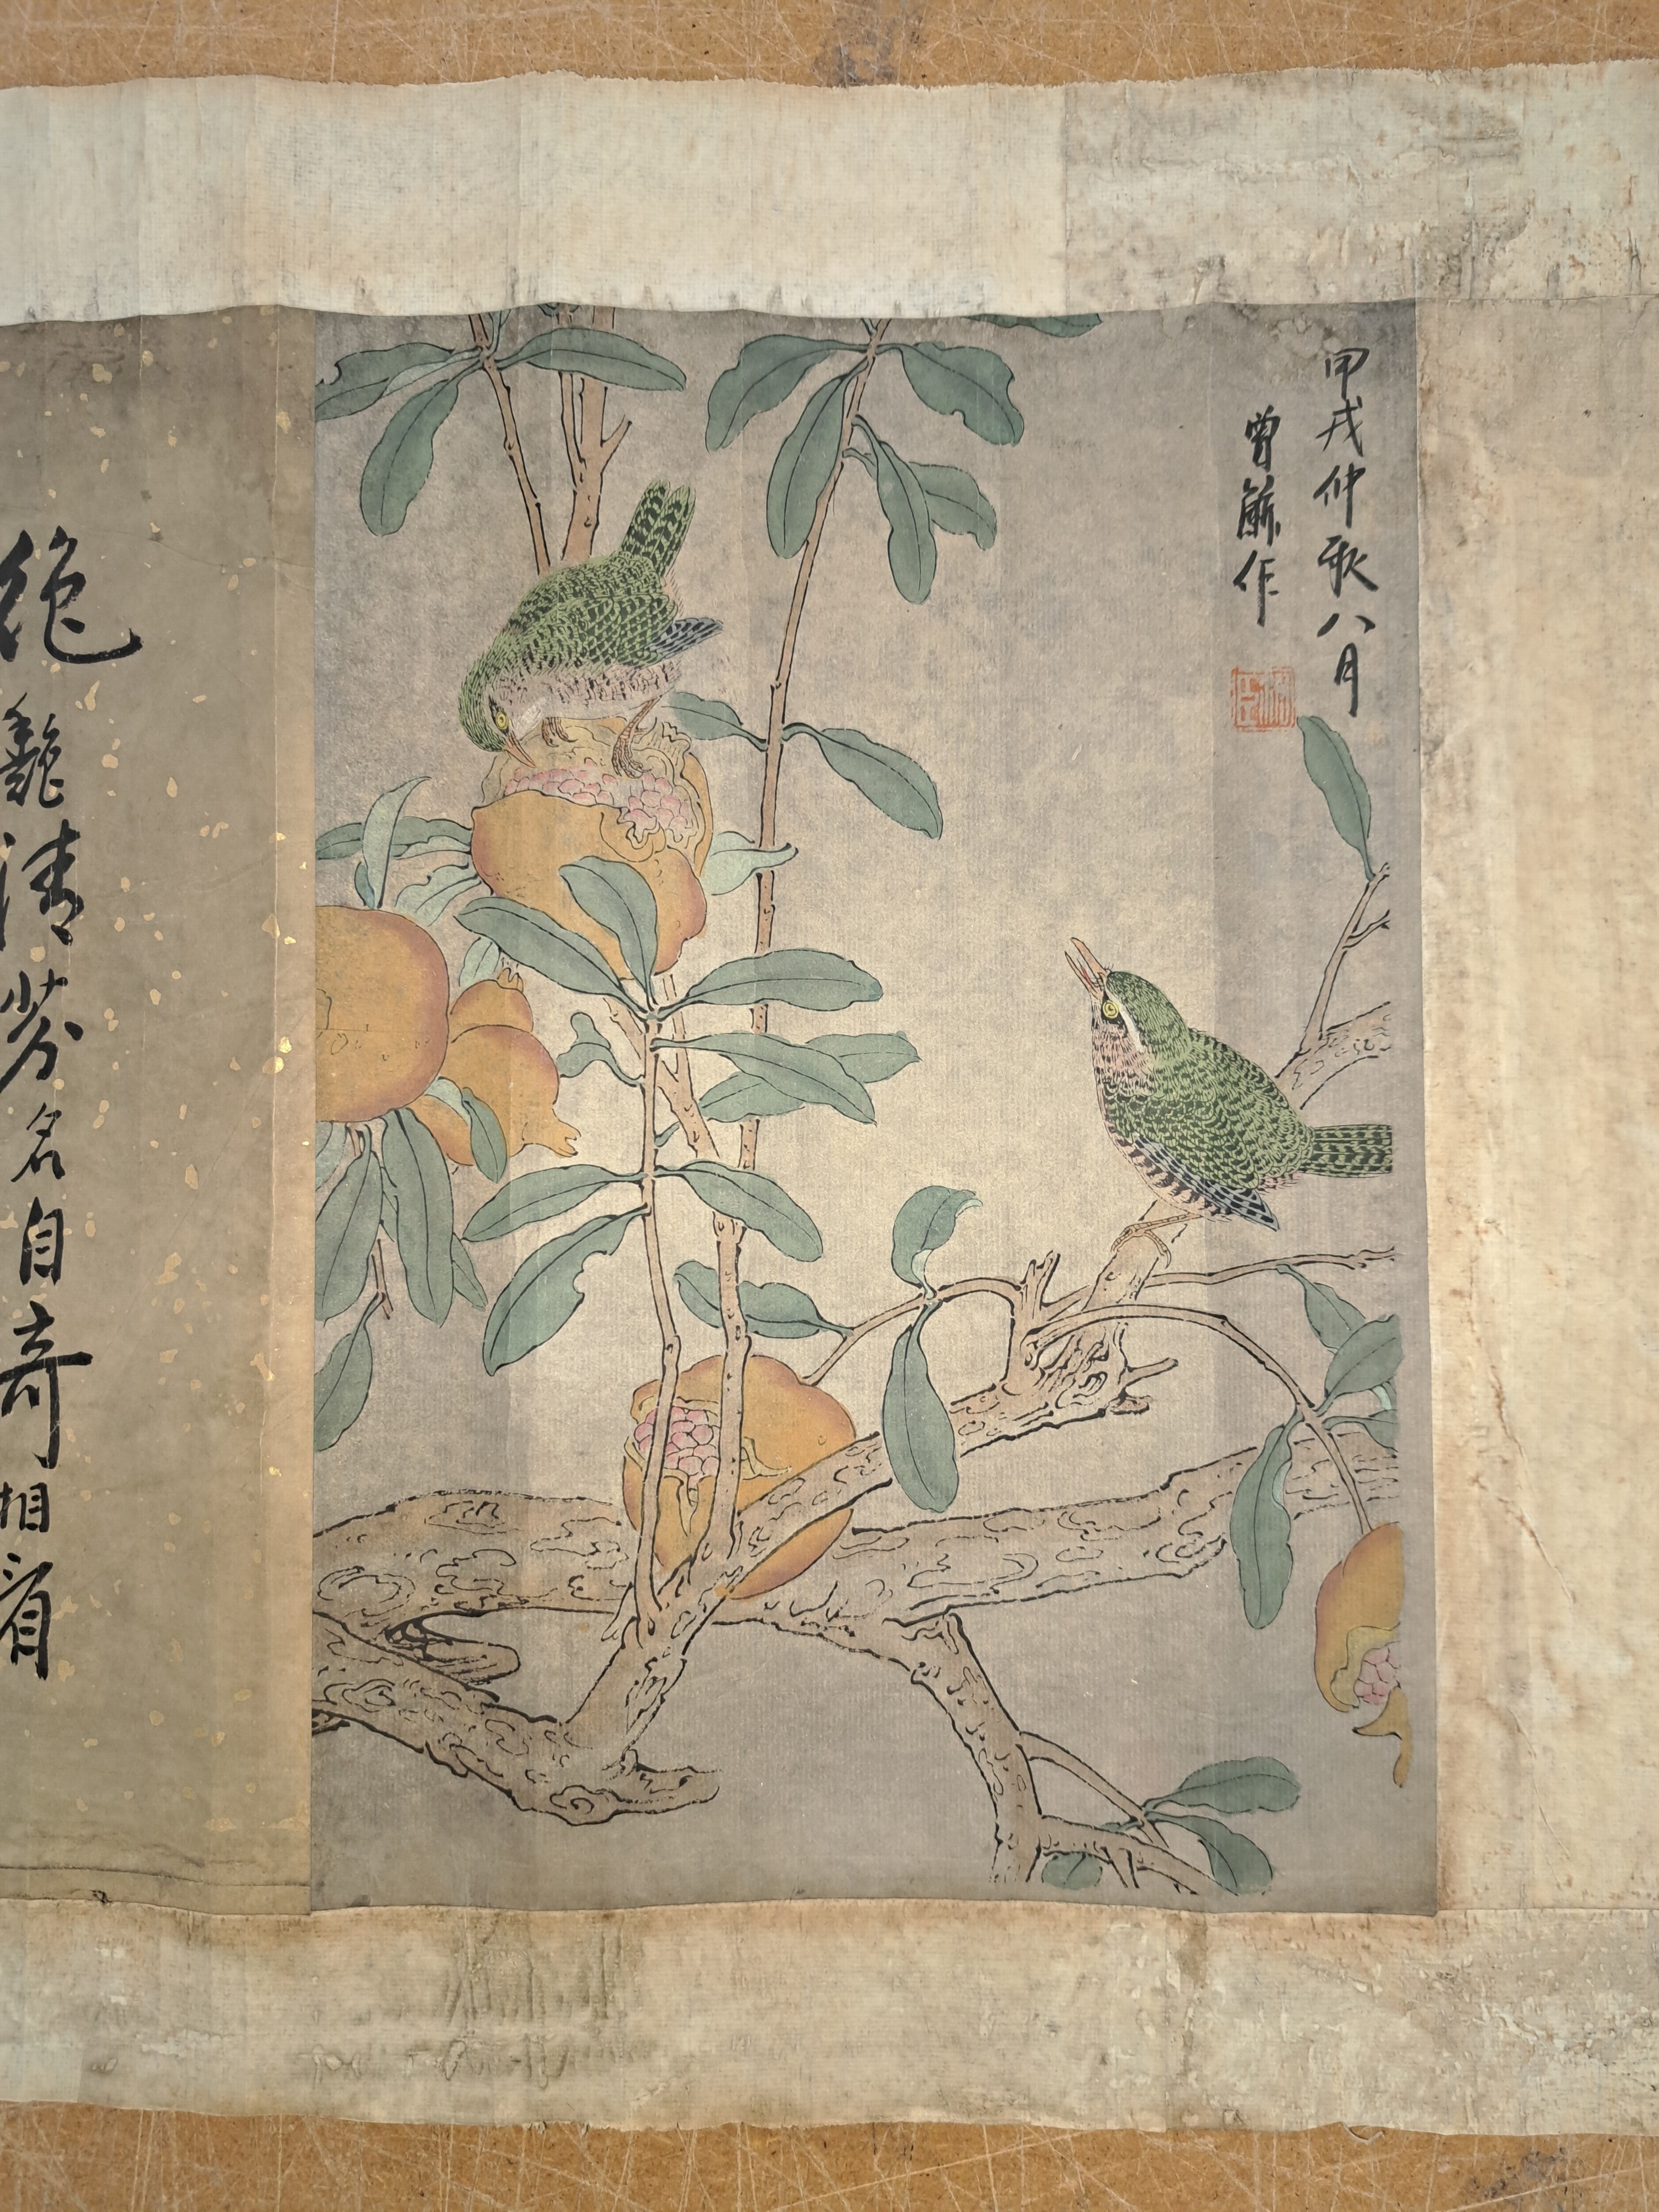 甲戌仲秋八月
曾作
絶艷清芬名自奇相看